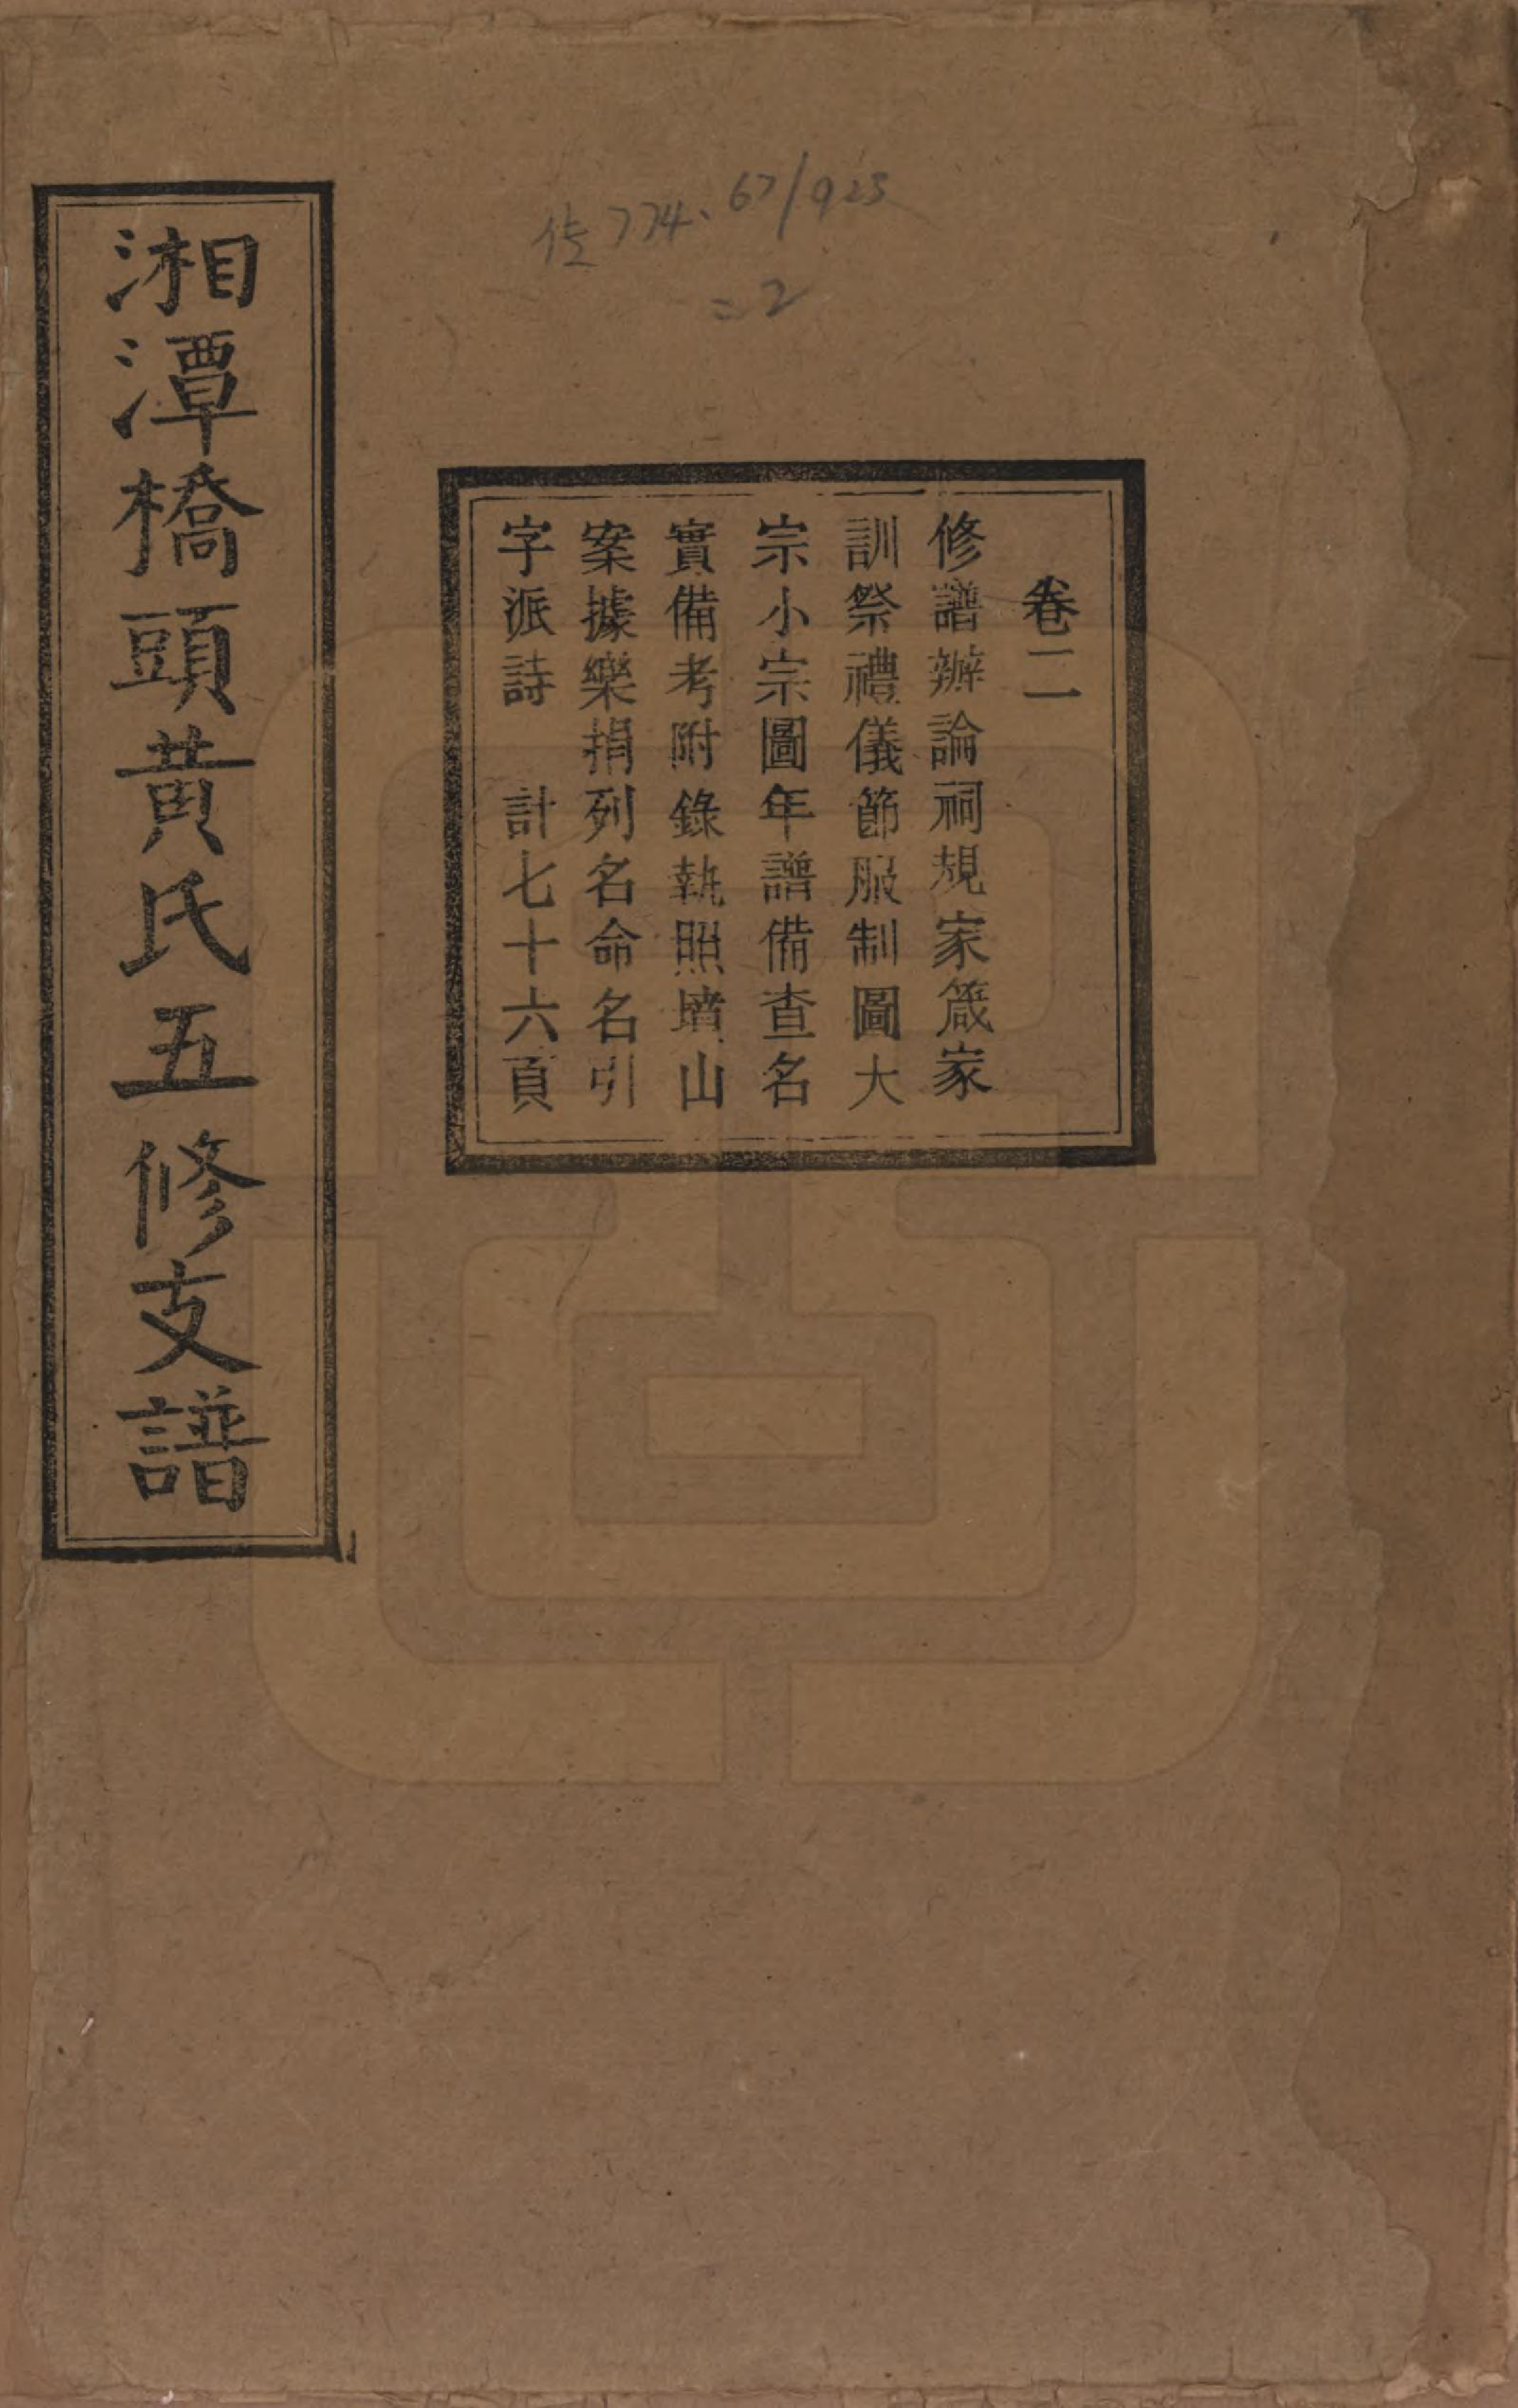 傳774.67/923
=2
卷二
修譜辦論祠規家箴家
訓祭禮儀節服制圖大
宗小宗圖年譜備查名
實備考附錄執照墳山
案據樂捐列名命名引
字派詩 計七十六頁
湘潭橋頭黃氏五修支譜